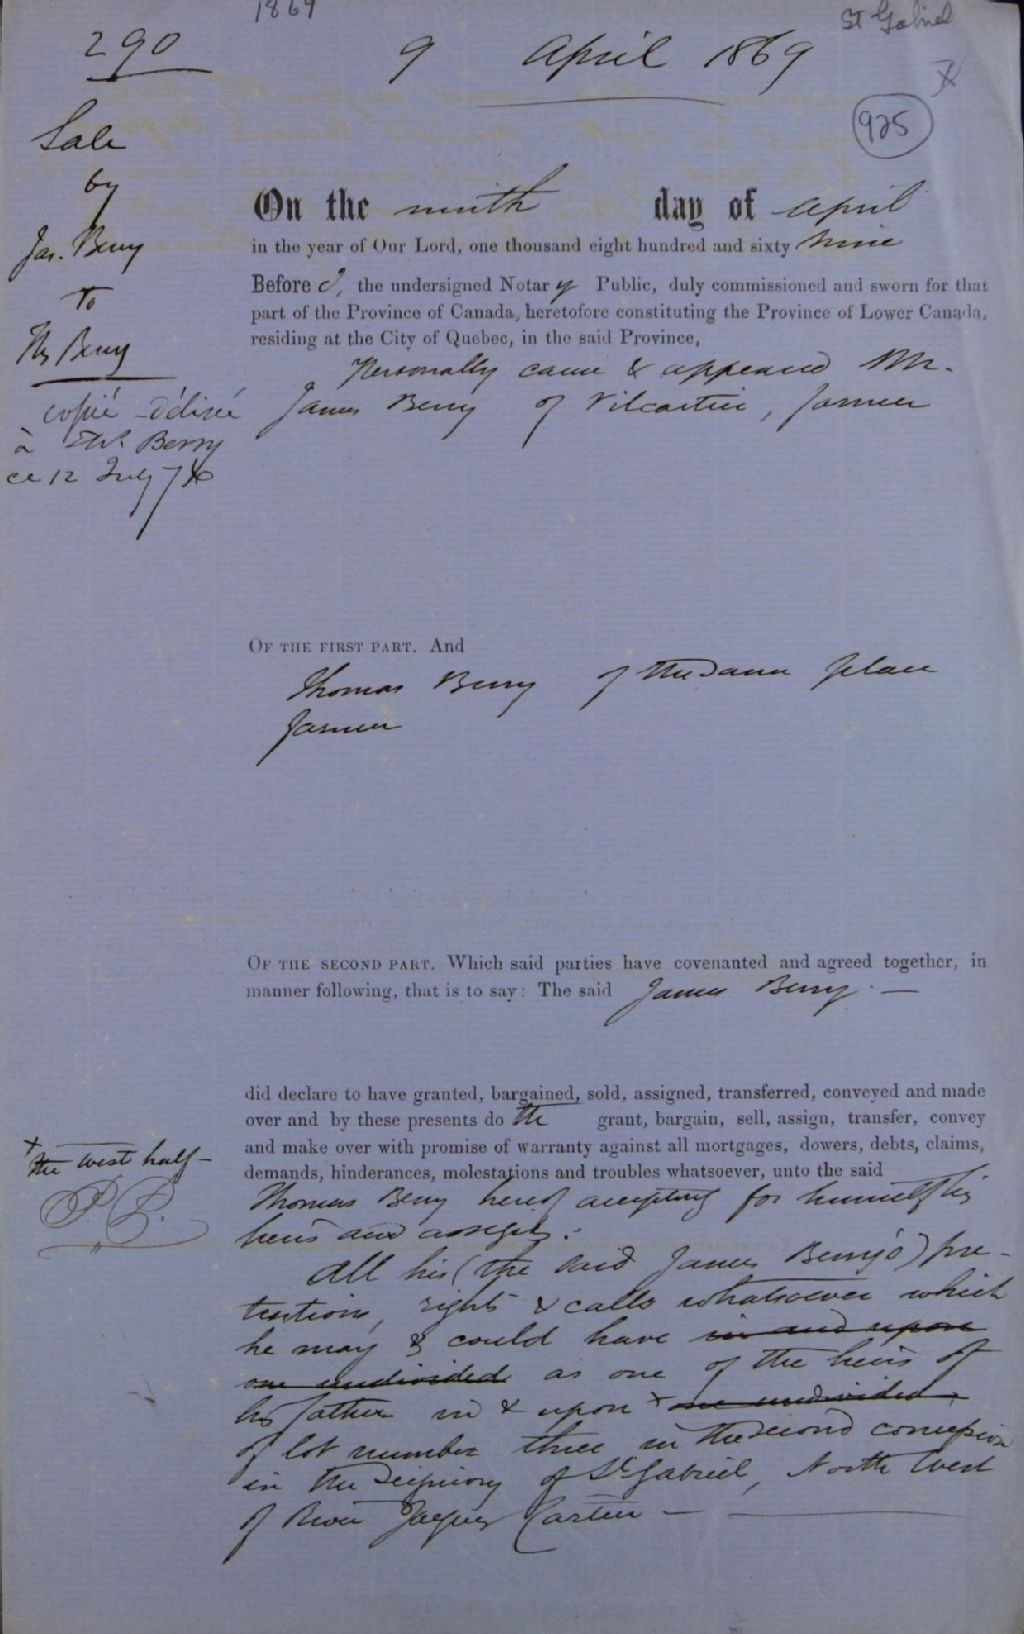 1869
St Gabriel
290
9 April 1869
925
Sale
by
Jas. Berry
To
Ths Berry
copié délivré
à Thos. Berry
ce 12 July 76
On the ninth day of April
in the year of Our Lord, one thousand eight hundred and sixty nine
Before I, the undersigned Notary Public, duly commissioned and sworn for that
part of the Province of Canada, heretofore constituting the Province of Lower Canada,
residing at the City of Quebec, in the said Province,
Personally came & appeared Mr.
James Berry of Vilcartier, farmer
OF THE FIRST PART. And
Thomas Berry of the same place
farmer
OF THE SECOND PART. Which said parties have covenanted and agreed together, in
manner following, that is to say: The said James Berry. —
did declare to have granted, bargained, sold, assigned, transferred, conveyed and made
over and by these presents do th grant, bargain, sell, assign, transfer, convey
and make over with promise of warranty against all mortgages, dowers, debts, claims,
demands, hinderances, molestations and troubles whatsoever, unto the said
Thomas Berry hereof accepting for himself his
heirs and assigns.
All his (the said James Berry's) pre-
tentions, rights & calls whatsoever which
he may & could have in and upon
one undivided as one of the heirs of
his father in & upon x one undivided
of lot number three in the second concession
in the Seigniory of St Gabriel, North West
of River Jacques Cartier —
x the west half —
P. L.